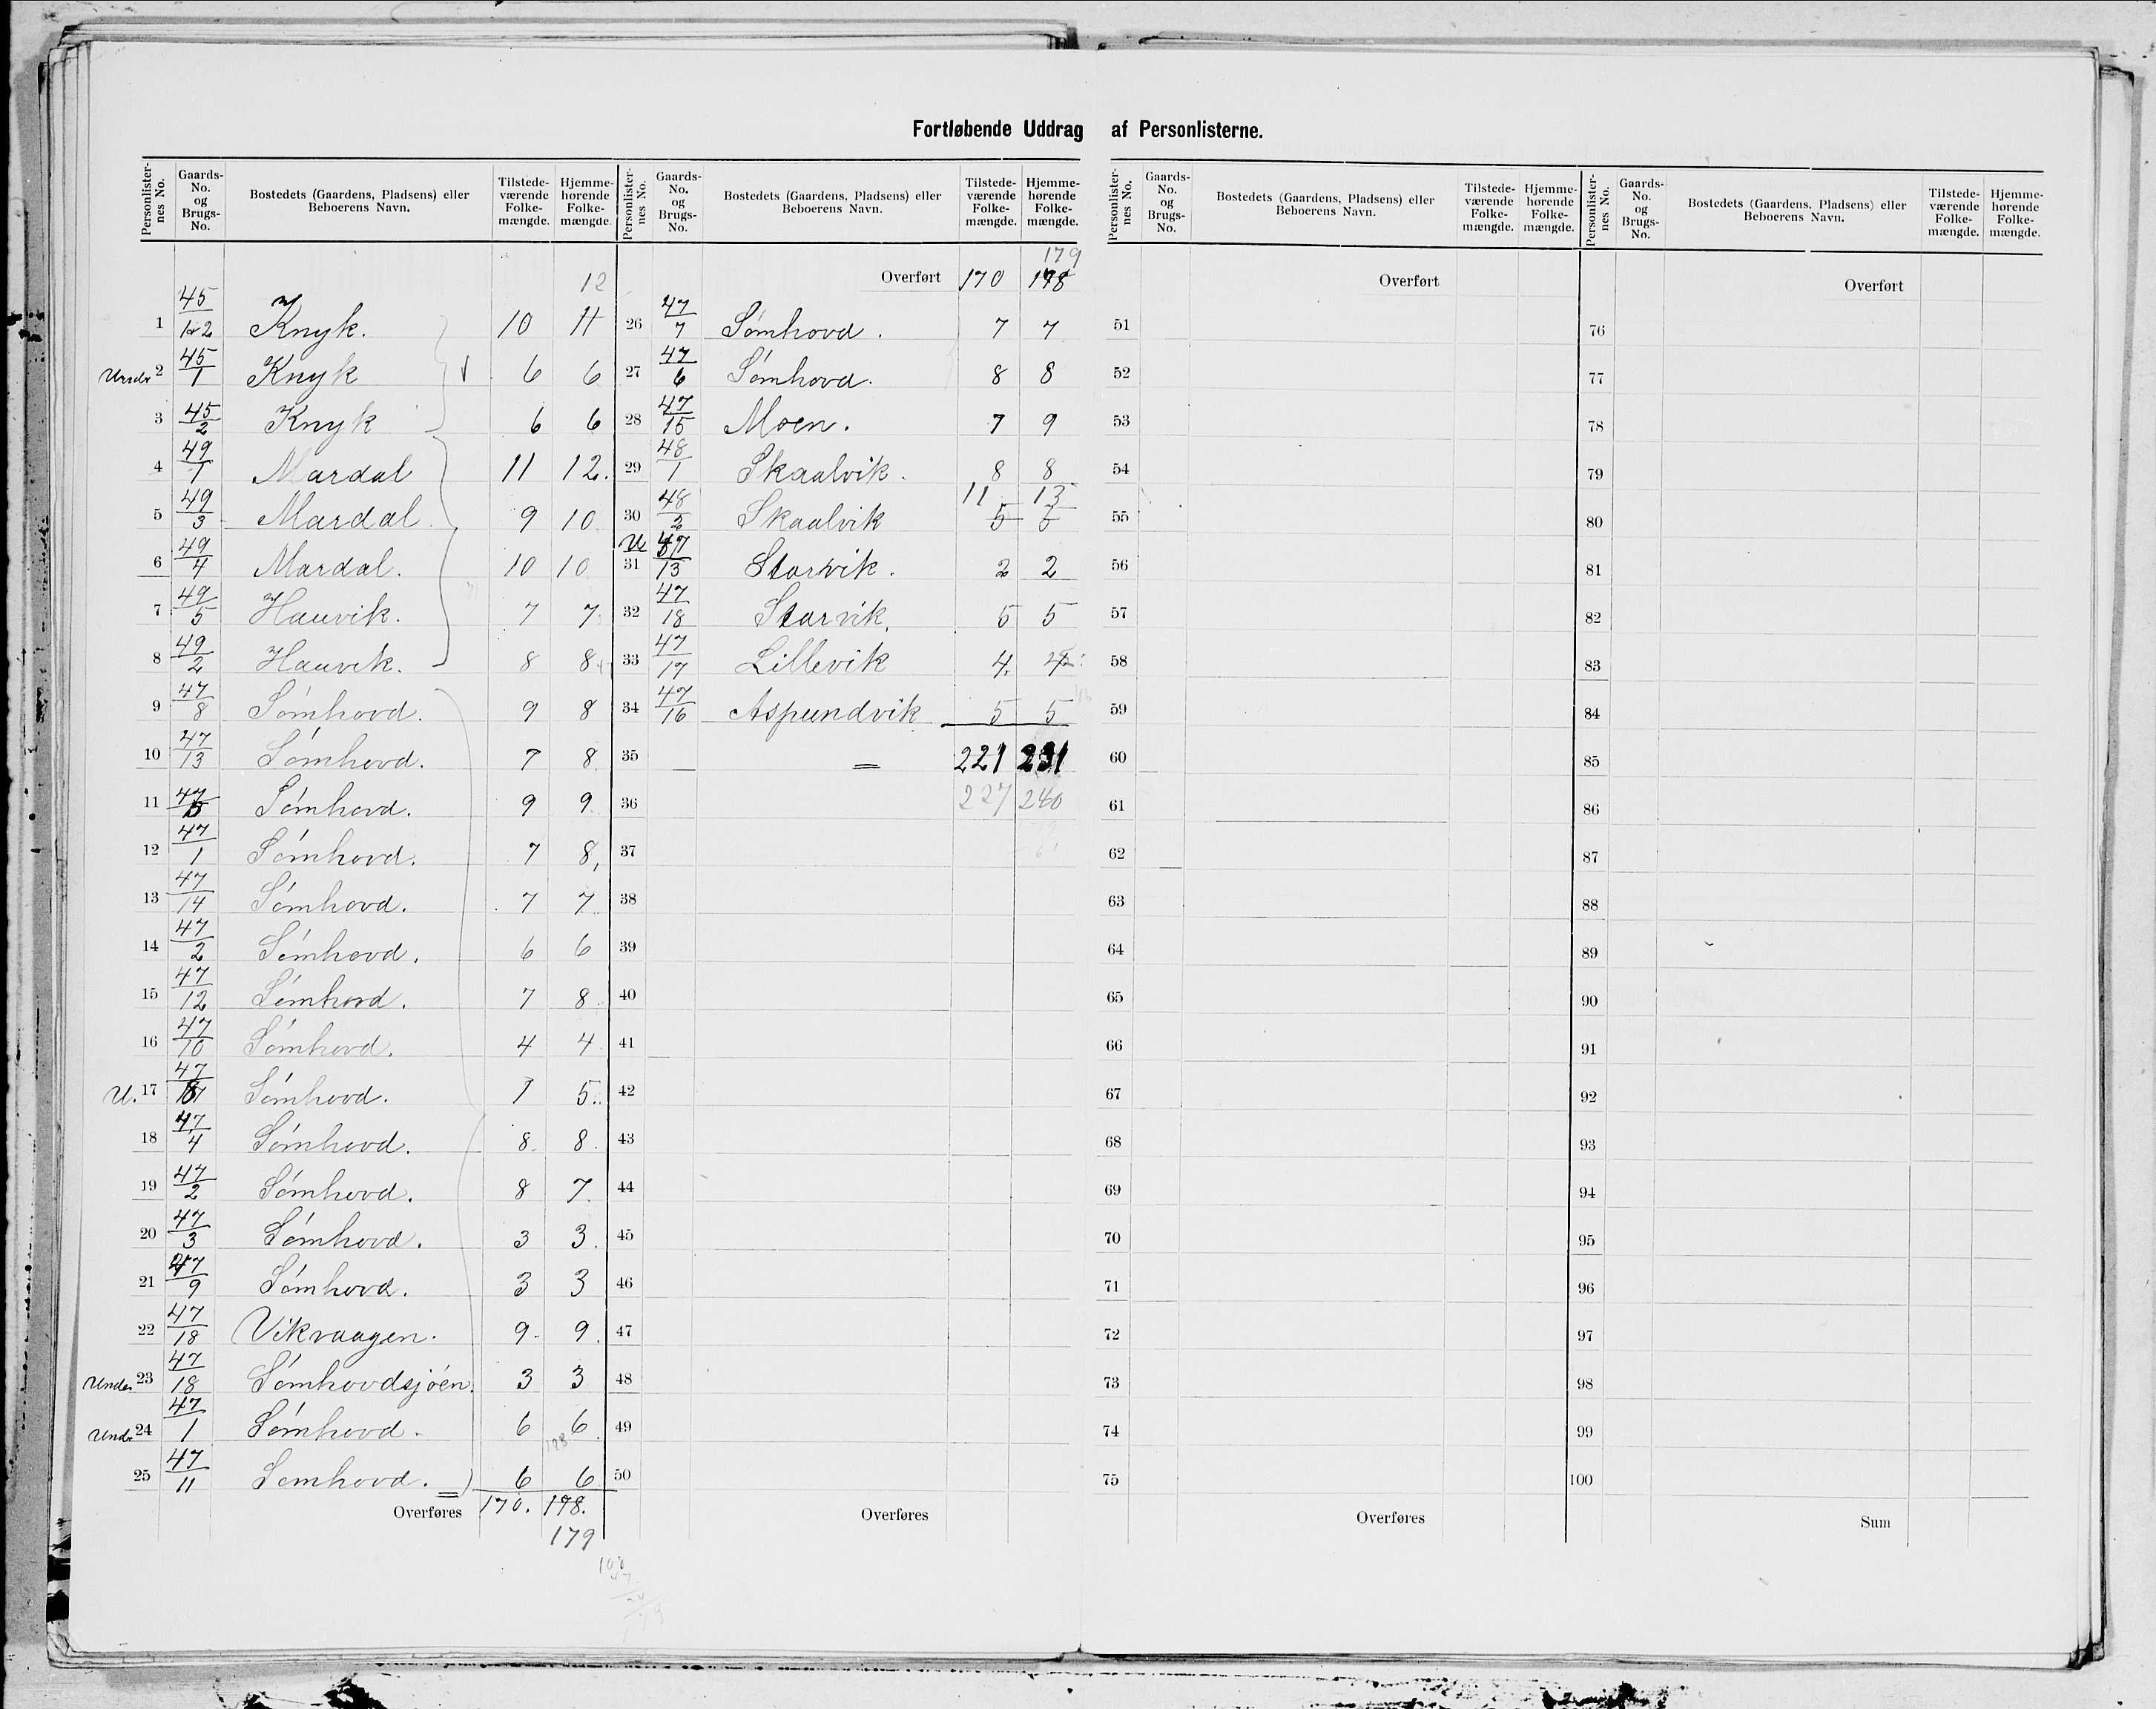 Fortløbende Uddrag af Personlisterne.
Personlisternes No. Gaards-No. og Brugs-No. Bostedets (Gaardens, Pladsens) eller Beboerens Navn. Tilstedeværende Folkemængde. Hjemmehørende Folkemængde.
12
1 45/1&2 Knyk. 10 11
Under 2 45/1 Knyk 6 6
3 45/2 Knyk 6 6
4 49/1 Mardal 11 12.
5 49/3 Mardal 9 10
6 49/4 Mardal. 10 10
7 49/5 Hauvik. 7 7
8 49/2 Hauvik. 8 8
9 47/8 Sömhovd. 9 8
10 47/13 Sömhovd. 7 8
11 47/5 Sömhovd. 9 9
12 47/1 Sömhovd. 7 8
13 47/14 Sömhovd. 7 7
14 47/2 Sömhovd. 6 6
15 47/12 Sömhovd. 7 8
16 47/10 Sömhovd. 4 4
U. 17 47/ Sömhovd. 1 5
18 47/4 Sömhovd. 8 8
19 47/2 Sömhovd. 8 7
20 47/3 Sömhovd. 3 3
21 47/9 Sömhovd. 3 3
22 47/18 Vikvaagen. 9 9
Under 23 47/18 Sömhovdsjöen. 3 3
Und. 24 47/1 Sömhovd. 6 6
25 47/11 Somhovd. 6 6
Overføres 170. 178.
179
Personlisternes No. Gaards-No. og Brugs-No. Bostedets (Gaardens, Pladsens) eller Beboerens Navn. Tilstedeværende Folkemængde. Hjemmehørende Folkemængde.
179
Overført 170 178
26 47/7 Sömhovd. 7 7
27 47/6 Sömhovd. 8 8
28 47/15 Moen. 7 9
29 48/1 Skaalvik. 8 8
11 13
30 48/2 Skaalvik 5 6
U 31 47/13 Storvik. 2 2
32 47/18 Storvik. 5 5
33 47/17 Lillevik 4
34 47/16 Aspundvik 5 5
35 = 221 231
36 227 240
37
38
39
40
41
42
43
44
45
46
47
48
49
50
Overføres
Personlisternes No. Gaards-No. og Brugs-No. Bostedets (Gaardens, Pladsens) eller Beboerens Navn. Tilstedeværende Folkemængde. Hjemmehørende Folkemængde.
Overført
51
52
53
54
55
56
57
58
59
60
61
62
63
64
65
66
67
68
69
70
71
72
73
74
75
Overføres
Personlisternes No. Gaards-No. og Brugs-No. Bostedets (Gaardens, Pladsens) eller Beboerens Navn. Tilstedeværende Folkemængde. Hjemmehørende Folkemængde.
Overført
76
77
78
79
80
81
82
83
84
85
86
87
88
89
90
91
92
93
94
95
96
97
98
99
100
Sum